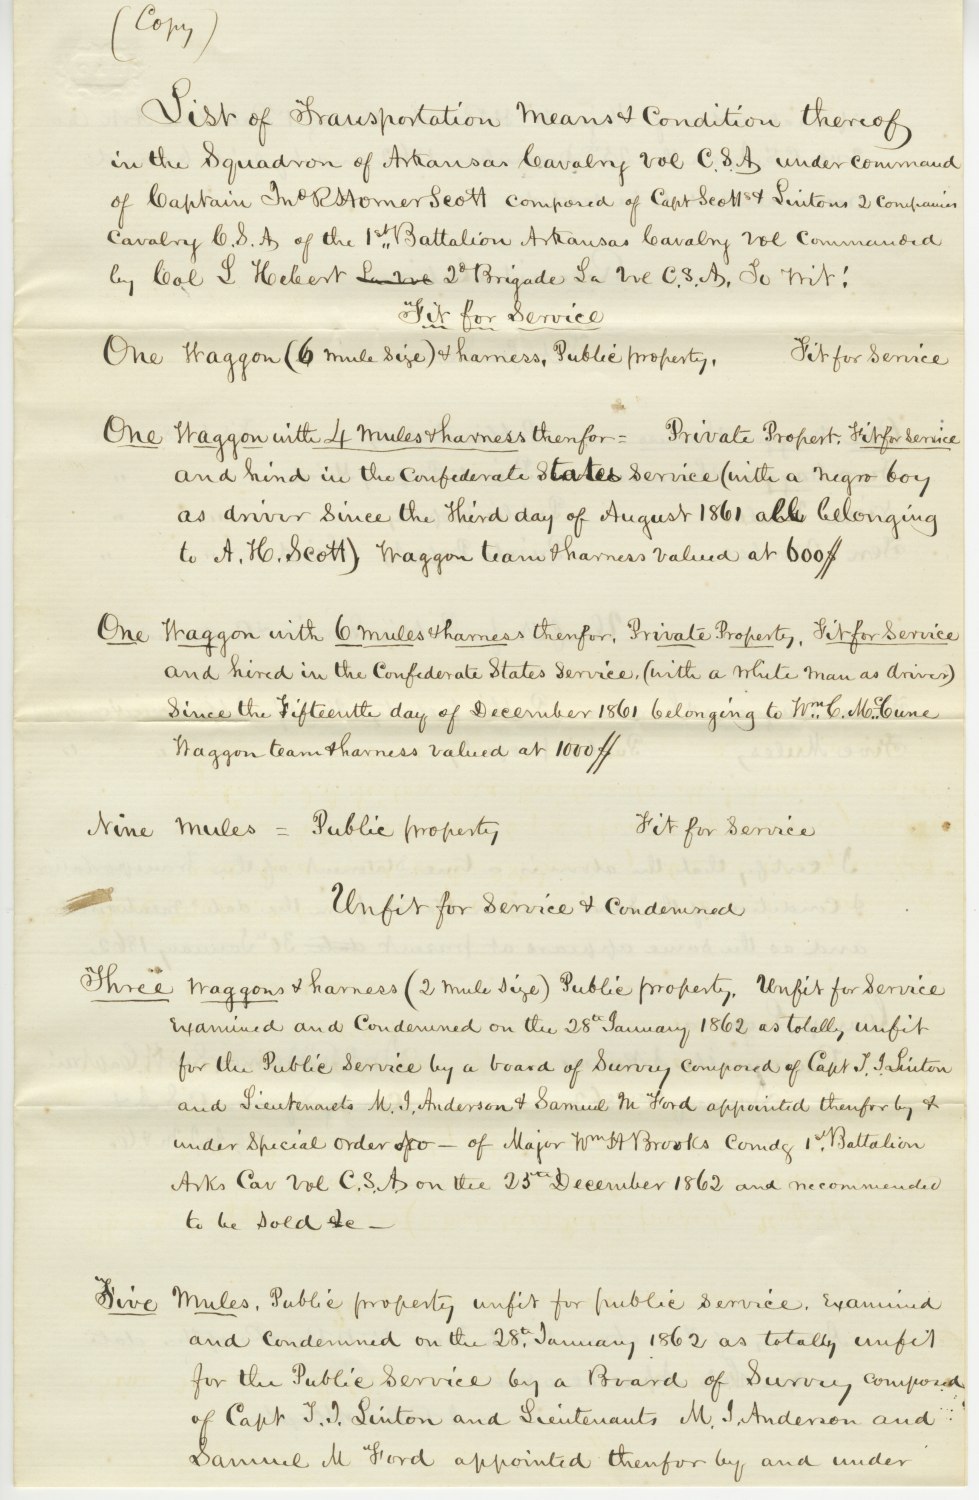 (Copy)
List of Transportation Means & Condition thereof
in the Squadron of Arkansas Cavalry Vol C.S.A under command
of Captain Jno R Homer Scott composed of Capt Scotts & Lintons 2 Companies
Cavalry C.S.A of the 1st Battalion Arkansas Cavalry Vol Commanded
by Col L Hebert La Vol 2d Brigade La Vol C.S.A. To Wit!
Fit for Service
One Waggon (6 mule Size) & harness, Public property, Fit for Service
One Waggon with 4 Mules & harness therefor = Private Propert. Fit for Service
and hired in the Confederate States Service (with a negro boy
as driver since the third day of August 1861 all belonging
to A. H. Scott) Waggon team & harness valued at 600//
One Waggon with 6 mules & harness therefor, Private Property, Fit for Service
and hired in the Confederate States Service, (with a white man as driver)
Since the Fifteenth day of December 1861 belonging to Wm C. McCune
Waggon team & harness valued at 1000//
Nine Mules = Public property Fit for Service
Unfit for Service & Condemned
Three Waggons & harness (2 mule Size) Public property, Unfit for Service
Examined and Condemned on the 28th January 1862 as totally unfit
for the Public Service by a board of Survey composed of Capt T. J. Linton
and Lieutenants M. J. Anderson & Samuel M Ford appointed therefor by &
under Special order No — of Major Wm H Brooks Comdg 1st Battalion
Arks Cav Vol C.S.A on the 25th December 1862 and recommended
to be Sold &c —
Five Mules, Public property unfit for public Service, Examined
and Condemned on the 28th January 1862 as totally unfit
for the Public Service by a Board of Survey composed
of Capt T. J. Linton and Lieutenants M. J. Anderson and
Samuel M Ford appointed therefor by and under